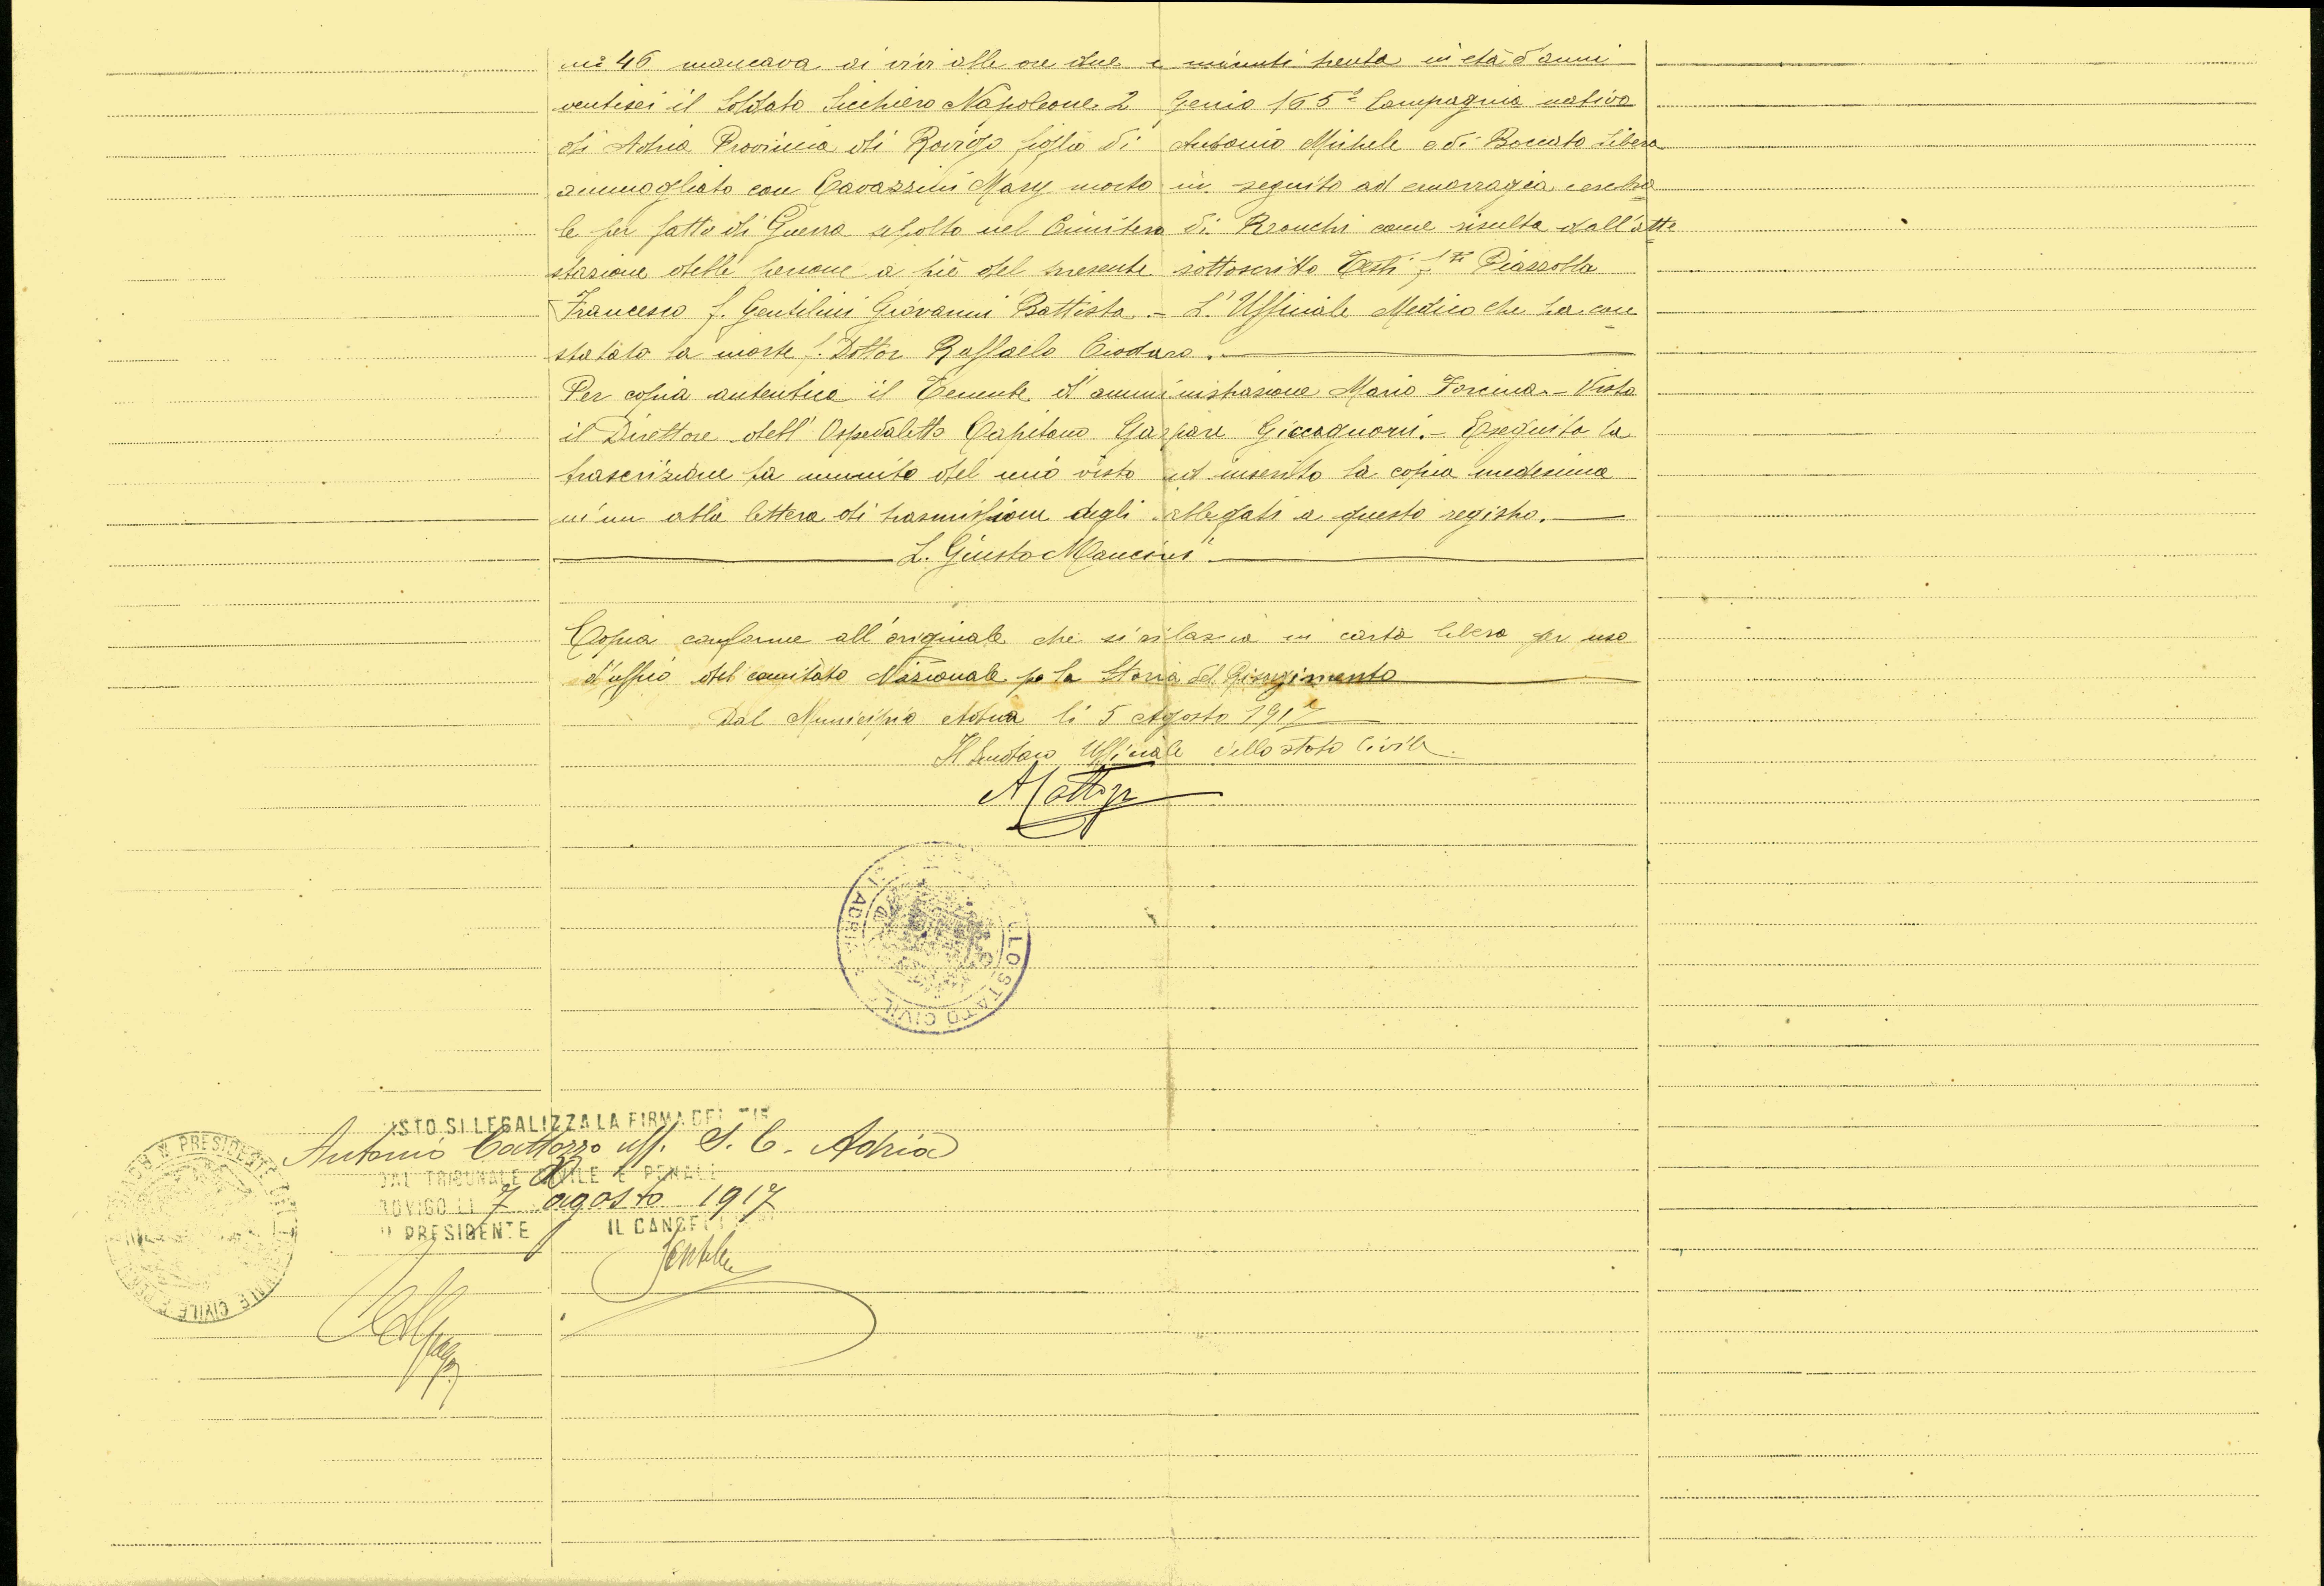 n° 46 mancava ai vivi alle ore due e minuti trenta in età d'anni
ventisei il Soldato Sicchiero Napoleone 2 Genio 165ª Compagnia nativo
di Adria Provincia di Rovigo figlio di Antonio Michele e di Boccato Libera
ammogliato con Cavazzini Mary morto in seguito ad emorragia cerebra
le per fatto di Guerra sepolto nel Cimitero di Ronchi come risulta dall'atte
stazione delle persone a piè del presente sottoscritto Testi fti Piazzolla
Francesco f. Gentilini Giovanni Battista.- L'Ufficiale Medico che ha con
statato la morte f. Dottor Raffaele Ciodaro.
Per copia autentica il Tenente d'amministrazione Mario Forcina.- Visto
il Direttore dell'Ospedaletto Capitano Gaspare .- Eseguita la
trascrizione ha munito del mio visto ed inserito la copia medesima
alla lettera di trasmissione degli allegati a questo registro.
L. Giusto Mancini
Copia conforme all'originale che si rilascia in carta libera per uso
d'uffio del comitato Nazionale pe la Storia del Risorgimento
Dal Municipio Adria li 5 Agosto 1917
Il Ufficiale dello stato Civile
LLO STATO CIVILE
ADRIA
ISTO SI LEGALIZZA LA FIRMA DEL
Antonio Cattozzo uff. S. C. Adria
DAL TRIBUNALE CIVILE E PENALE
ROVIGO LI 7 agosto 1917
PRESIDENTE IL CANCELL
Gentile
PRESIDENTE
CIVILE E